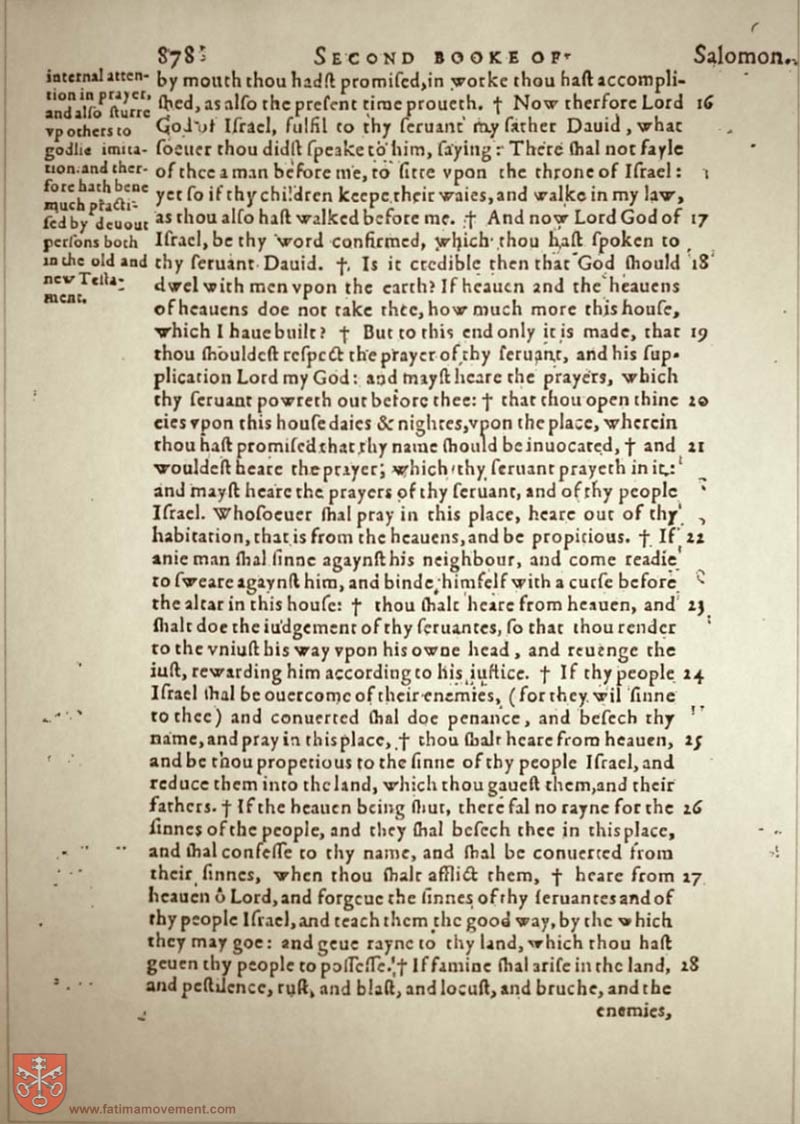 878
SECOND BOOKE OF
Salomon.
internal atten-
tion in prayer,
and also sturre
vp others to
godlie imita-
tion. and ther-
fore hath bene
much practi-
sed by deuout
persons both
in the old and
new Testa-
ment.
by mouth thou hadſt promiſed, in worke thou haſt accompli-
ſhed, as alſo the preſent time proueth. † Now therfore Lord 16
God of Iſrael, fulfil to thy ſeruant my father Dauid, what
ſoeuer thou didſt ſpeake to him, ſaying: There ſhal not fayle
of thee a man before me, to ſitte vpon the throne of Iſrael:
yet ſo if thy children keepe their waies, and walke in my law,
as thou alſo haſt walked before me. † And now Lord God of 17
Iſrael, be thy word confirmed, which thou haſt ſpoken to
thy ſeruant Dauid. † Is it credible then that God ſhould 18
dwel with men vpon the earth? If heauen and the heauens
of heauens doe not take thee, how much more this houſe,
which I haue built? † But to this end only it is made, that 19
thou ſhouldeſt reſpect the prayer of thy ſeruant, and his ſup-
plication Lord my God: and mayſt heare the prayers, which
thy ſeruant powreth out before thee: † that thou open thine 20
eies vpon this houſe daies & nightes, vpon the place, wherein
thou haſt promiſed that thy name ſhould be inuocated, † and 21
wouldeſt heare the prayer; which thy ſeruant prayeth in it:
and mayſt heare the prayers of thy ſeruant, and of thy people
Iſrael. Whoſoeuer ſhal pray in this place, heare out of thy
habitation, that is from the heauens, and be propitious. † If 22
anie man ſhal ſinne agaynſt his neighbour, and come readie
to ſweare agaynſt him, and binde himſelf with a curſe before
the altar in this houſe: † thou ſhalt heare from heauen, and 23
ſhalt doe the iudgement of thy ſeruantes, ſo that thou render
to the vniuſt his way vpon his owne head, and reuenge the
iuſt, rewarding him according to his iuſtice. † If thy people 24
Iſrael ſhal be ouercome of their enemies, (for they wil ſinne
to thee) and conuerted ſhal doe penance, and beſech thy
name, and pray in this place, † thou ſhalt heare from heauen, 25
and be thou propetious to the ſinne of thy people Iſrael, and
reduce them into the land, which thou gaueſt them, and their
fathers. † If the heauen being ſhut, there fal no rayne for the 26
ſinnes of the people, and they ſhal beſech thee in this place,
and ſhal confeſſe to thy name, and ſhal be conuerted from
their ſinnes, when thou ſhalt afflict them, † heare from 27
heauen ô Lord, and forgeue the ſinnes of thy ſeruantes and of
thy people Iſrael, and teach them the good way, by the which
they may goe: and geue rayne to thy land, which thou haſt
geuen thy people to poſſeſſe. † If famine ſhal ariſe in the land, 28
and peſtilence, ruſt, and blaſt, and locuſt, and bruche, and the
enemies,
www.fatimamovement.com